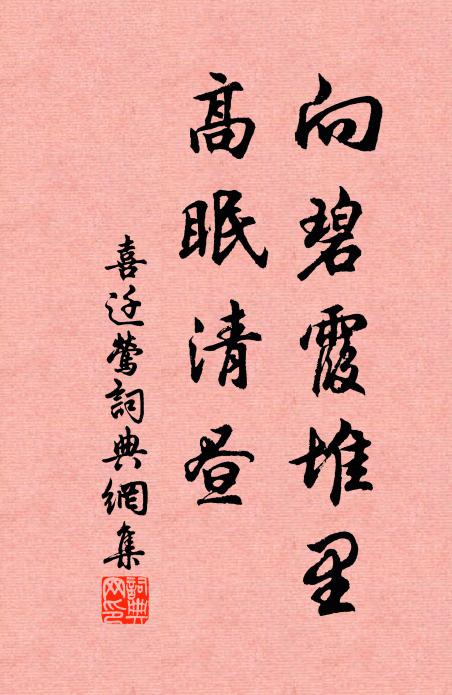 向碧霞堆里
高眠清昼
喜迁莺詞典網集
詞典
网印